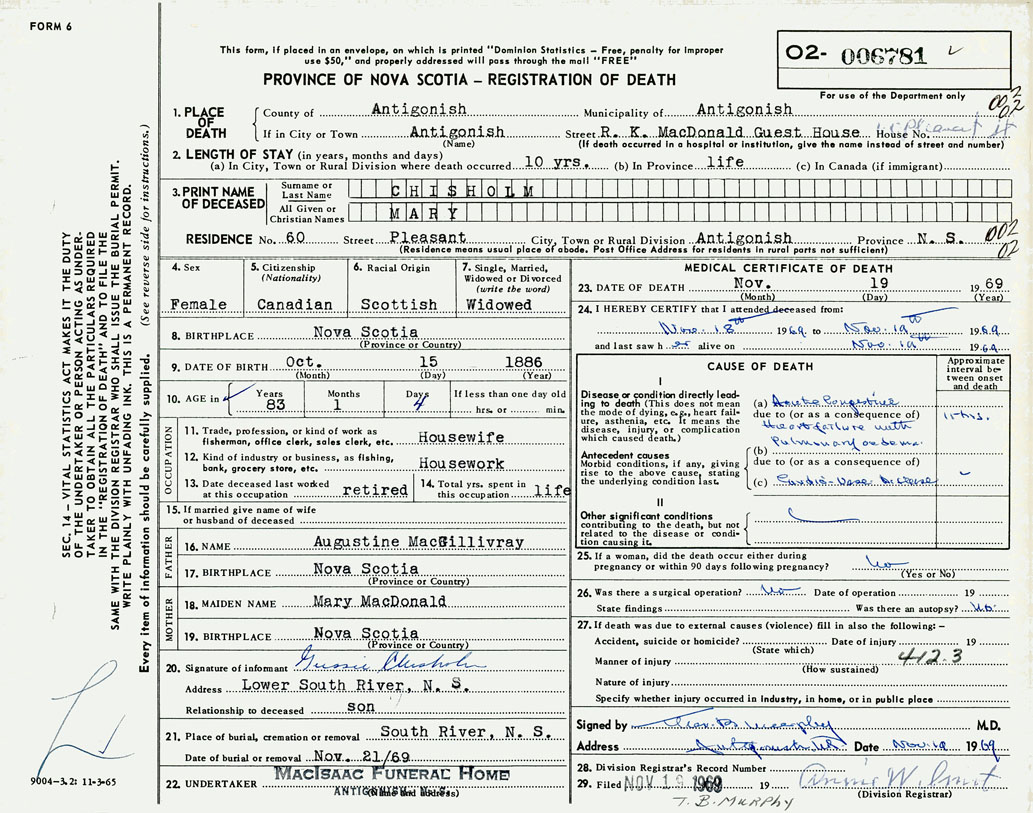 FORM 6
This form, if placed in an envelope, on which is printed "Dominion Statistics – Free, penalty for improper
use $50," and properly addressed will pass through the mail "FREE"
PROVINCE OF NOVA SCOTIA – REGISTRATION OF DEATH
O2- 006781
For use of the Department only
002
02
1. PLACE OF DEATH
County of Antigonish Municipality of Antigonish
If in City or Town Antigonish Street R. K. MacDonald Guest House House No.
(Name) (If death occurred in a hospital or institution, give the name instead of street and number)
2. LENGTH OF STAY (in years, months and days)
(a) In City, Town or Rural Division where death occurred 10 yrs. (b) In Province life (c) In Canada (if immigrant)
3. PRINT NAME OF DECEASED
Surname or Last Name CHISHOLM
All Given or Christian Names MARY
RESIDENCE No. 60 Street Pleasant City, Town or Rural Division Antigonish Province N. S. 002
02
(Residence means usual place of abode. Post Office Address for residents in rural parts not sufficient)
4. Sex Female
5. Citizenship (Nationality) Canadian
6. Racial Origin Scottish
7. Single, Married, Widowed or Divorced (write the word) Widowed
8. BIRTHPLACE Nova Scotia
(Province or Country)
9. DATE OF BIRTH Oct. 15 1886
(Month) (Day) (Year)
10. AGE in Years 83 Months 1 Days 4 If less than one day old hrs. or min.
OCCUPATION
11. Trade, profession, or kind of work as fisherman, office clerk, sales clerk, etc. Housewife
12. Kind of industry or business, as fishing, bank, grocery store, etc. Housework
13. Date deceased last worked at this occupation retired
14. Total yrs. spent in this occupation life
15. If married give name of wife or husband of deceased
FATHER
16. NAME Augustine MacGillivray
17. BIRTHPLACE Nova Scotia
(Province or Country)
MOTHER
18. MAIDEN NAME Mary MacDonald
19. BIRTHPLACE Nova Scotia
(Province or Country)
20. Signature of informant Gussie Chisholm
Address Lower South River, N. S.
Relationship to deceased son
21. Place of burial, cremation or removal South River, N. S.
Date of burial or removal Nov. 21/69
22. UNDERTAKER MACISAAC FUNERAL HOME
ANTIGONISH, N. S.
(Name and address)
MEDICAL CERTIFICATE OF DEATH
23. DATE OF DEATH Nov. 19 1969
(Month) (Day) (Year)
24. I HEREBY CERTIFY that I attended deceased from:
Nov. 18th 1969 to Nov. 19th 1969
and last saw her alive on Nov. 19th 1969
CAUSE OF DEATH
Approximate interval between onset and death
I
Disease or condition directly leading to death (This does not mean the mode of dying, e.g., heart failure, asthenia, etc. It means the disease, injury, or complication which caused death.)
(a) Acute Congestive
due to (or as a consequence of)
Heart failure with
Pulmonary oedema
Antecedent causes
Morbid conditions, if any, giving rise to the above cause, stating the underlying condition last.
(b)
due to (or as a consequence of)
(c)
II
Other significant conditions
contributing to the death, but not related to the disease or condition causing it.
25. If a woman, did the death occur either during pregnancy or within 90 days following pregnancy? No
(Yes or No)
26. Was there a surgical operation? No Date of operation 19
State findings Was there an autopsy? No.
27. If death was due to external causes (violence) fill in also the following: –
Accident, suicide or homicide? Date of injury 19
(State which)
412.3
Manner of injury
(How sustained)
Nature of injury
Specify whether injury occurred in Industry, in home, or in public place
Signed by M.D.
Address Date Nov. 19 1969
28. Division Registrar's Record Number
29. Filed NOV 19 1969
(Division Registrar)
T. B. MURPHY
SEC. 14 – VITAL STATISTICS ACT MAKES IT THE DUTY
OF THE UNDERTAKER OR PERSON ACTING AS UNDER-
TAKER TO OBTAIN ALL THE PARTICULARS REQUIRED
IN THE "REGISTRATION OF DEATH" AND TO FILE THE
SAME WITH THE DIVISION REGISTRAR WHO SHALL ISSUE THE BURIAL PERMIT.
WRITE PLAINLY WITH UNFADING INK. THIS IS A PERMANENT RECORD.
Every item of information should be carefully supplied. (See reverse side for instructions.)
9004-3.2: 11-3-65